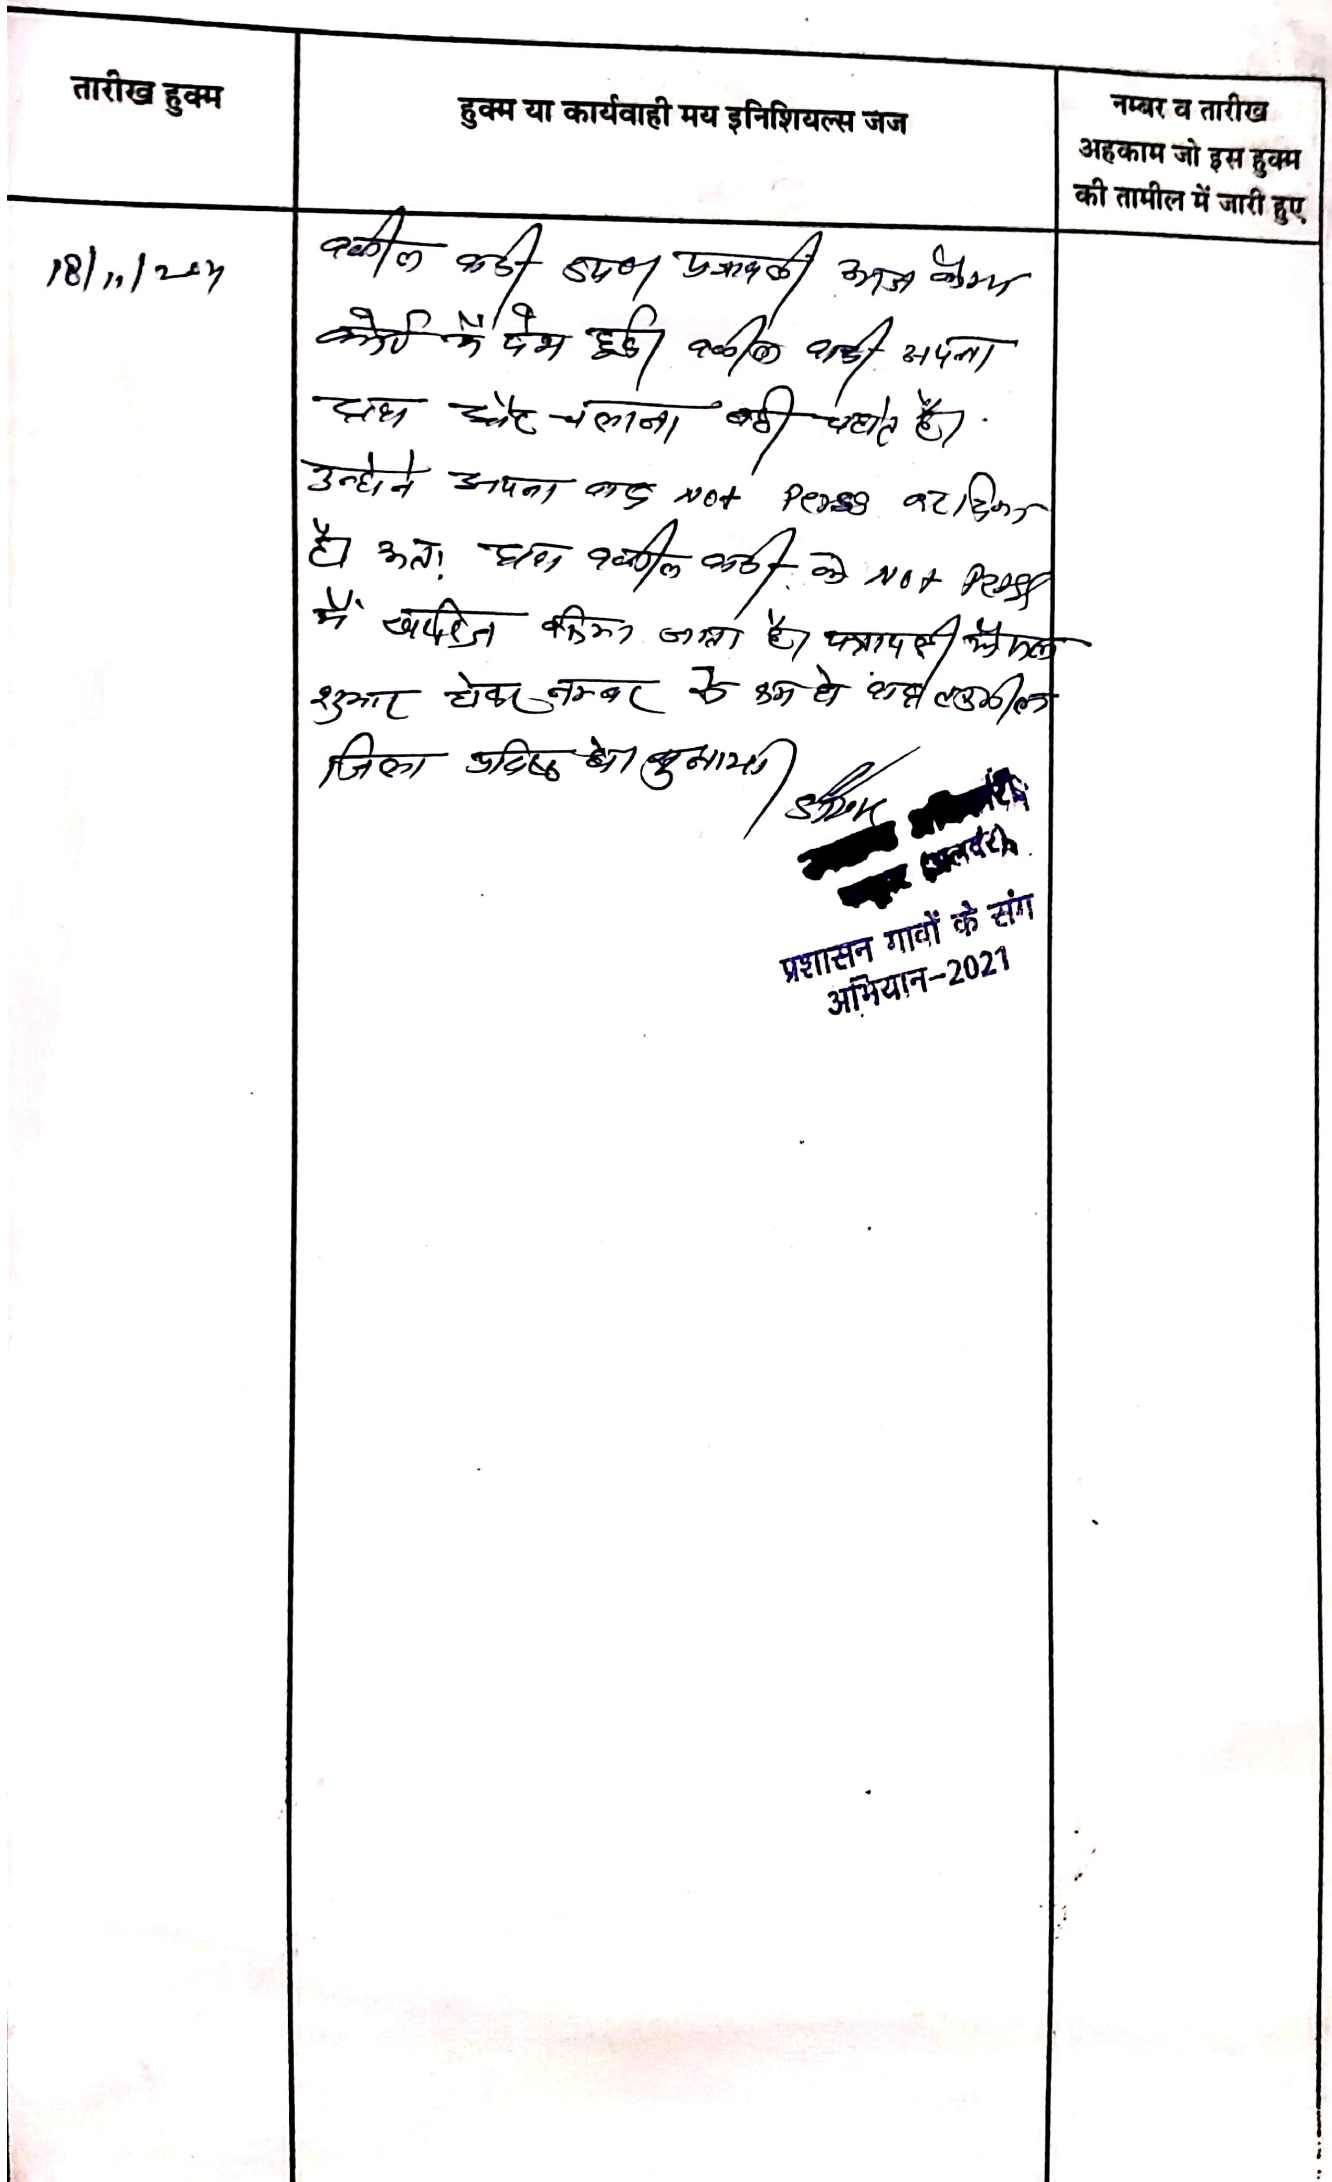 तारीख हुक्म
हुक्म या कार्यवाही मय इनिशियल्स जज
नम्बर व तारीख
अहकाम जो इस हुक्म
की तामील में जारी हुए
18/11/2021
वकील वादी उप० पत्रावली आज कैम्प
कोर्ट में पेश हुई। वकील वादी अपना
और चलाना नही चाहते है।
उन्होने अपना वाद Not Press कर दिया
है। अतः वकील वादी के Not Press
में खारिज किया जाता है। पत्रावली फैसल
शुमार होकर नम्बर से कम हो
जिला दाखिल हो।
(अलवर)
प्रशासन गावों के संग
अभियान-2021